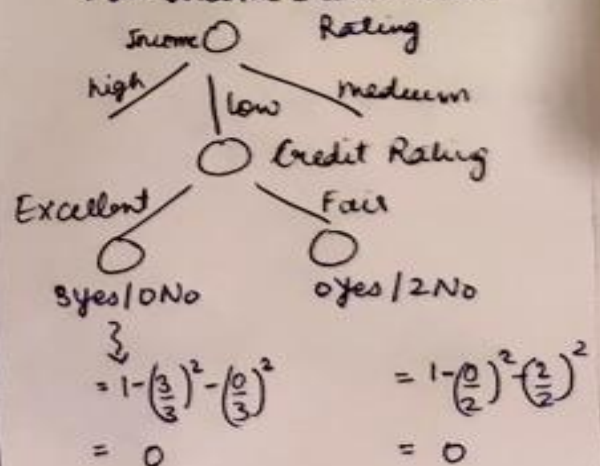 Income Rating
high low medium
Credit Rating
Excellent Fair
3yes/0No 0yes/2No
= 1-(3/3)²-(0/3)² = 1-(0/2)²-(2/2)²
= 0 = 0